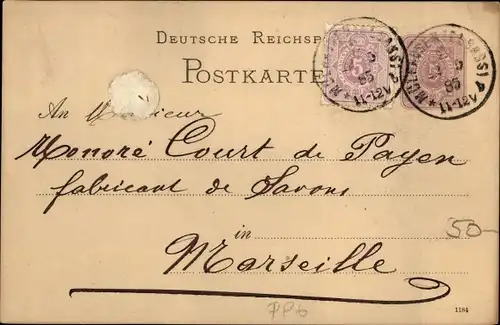 DEUTSCHE REICHSP
POSTKARTE
5
85
11-12V
85
11-12V
An Monsieur
Honoré Court de Payen
fabricant de Savons
50-
in
Marseille
1184